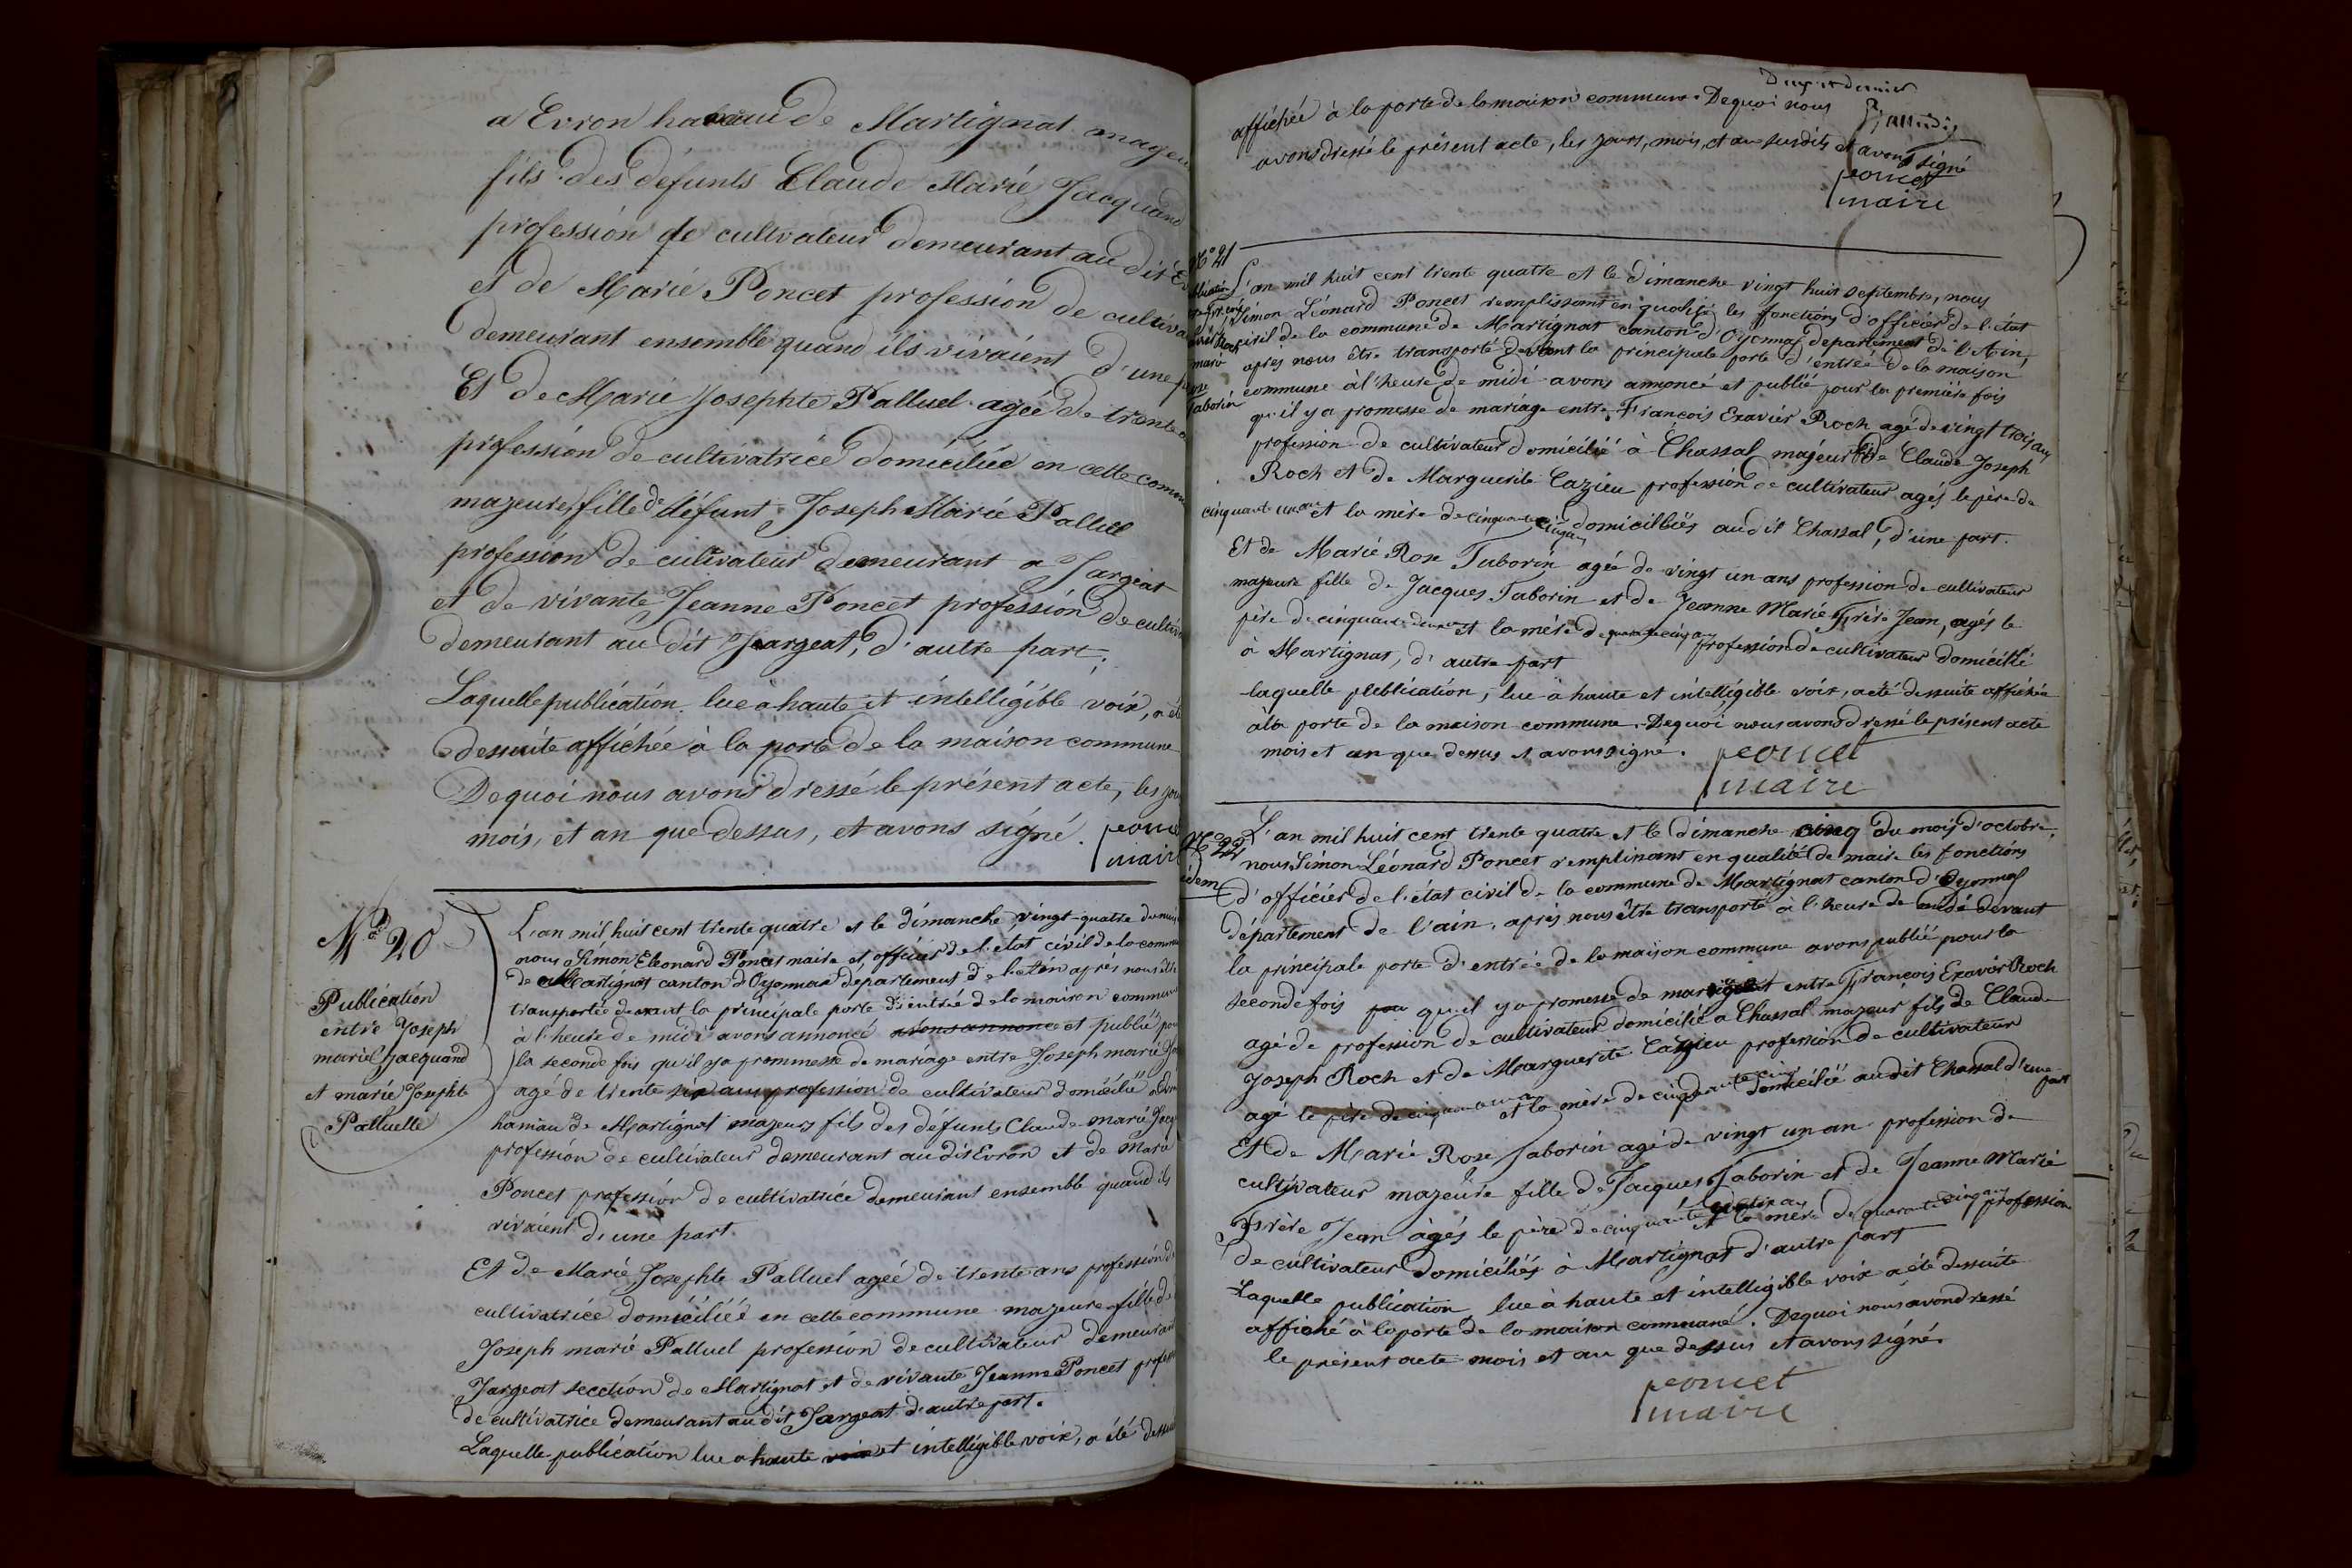 a Evron hameau de Martignat majeur
fils des défunts Claude Marie Jacquand
profession de cultivateur demeurant au dit Ev
et de Marie Poncet profession de cultiva
demeurant ensemble quand ils vivaient d'une pa
Et de Marie Josephte Palluel agée de trente a
profession de cultivatrice domiciliée en cette comm
majeure fille de défunt Joseph Marie Palluel
profession de cultivateur demeurant a Jargeat
et de vivante Jeanne Poncet profession de cultiv
demeurant au dit Jargeat, d'autre part;
Laquelle publication lue a haute et intelligible voix, a été
dessuite affichée à la porte de la maison commune
Dequoi nous avons dressé le présent acte, les jou
mois, et an que dessus, et avons signé. poncet
maire
N° 20
Publication
entre Joseph
marie Jacquand
et marie Josephte
Palluelle
L'an mil huit cent trente quatre et le dimanche vingt-quatre du mois
nous Simon Eleonard Poncet maire et officier de l'etat civil de la commune
de Martignat canton d'Oyonnax département de l'Ain après nous être
transportée devant la principale porte d'entrée de la maison commune
à l'heure de midi avons annoncé avons annoncé et publié pour
la seconde fois qu'il ya prommesse de mariage entre Joseph marie Ja
agé de trente six ans profession de cultivateur domicilié a Evron
hamau de Martignat majeur fils des défunts Claude marie Jacq
profession de cultivateur demeurant au dit Evron et de Marie
Poncet profession de cultivatrice demeurant ensemble quand ils
vivaient d'une part.
Et de Marie Josephte Palluel agée de trente ans profession de
cultivatrice domiciliée en cette commune majeure fille de
Joseph marie Palluel profession de cultivateur demeurant
Jargeat section de Martignat et de vivante Jeanne Poncet profess
de cultivatrice demeurant au dit Jargeat d'autre part.
Laquelle publication lue a haute voix et intelligible voix, a été dessu
affichée à la porte de la maison commune. Dequoi nous
avons dressé le présent acte, les jours, mois, et an susdits et avons signé
poncet
maire
N° 21
L'an mil huit cent trente quatre et le dimanche vingt huit septembre, nous
Simon Léonard Poncet remplissant en qualité les fonctions d'officier de l'état
civil de la commune de Martignat canton d'Oyonnax departement de l'Ain,
apres nous être transporté devant la principale porte d'entrée de la maison
commune à l'heure de midi avons annoncé et publié pour la premiere fois
Taborin
qu'il ya promesse de mariage entre François Exavier Roch agé de vingt trois ans
profession de cultivateur domicilié à Chassal majeur fils de Claude Joseph
Roch et de Marguerite Cazieu profession de cultivateur agés le père de
cinquante un an et la mère de cinquante cinq ans domicilliés audit Chassal, d'une part.
Et de Marie Rose Taborin agée de vingt un ans profession de cultivateur
majeure fille de Jacques Taborin et de Jeanne Marie Frère Jean, agés le
père de cinquante et la mère de quarante cinq ans profession de cultivateur domicillié
à Martignat, d'autre part
laquelle publication, lue à haute et intelligible voix, a été dessuite affichée
à la porte de la maison commune. Dequoi nous avons dressé le présent acte
mois et an que dessus et avons signé. poncet
maire
N° 22
idem
L'an mil huit cent trente quatre et le dimanche cinq du mois d'octobre.
nous Simon Léonard Poncet remplissant en qualité de maire les fonctions
d'officier de l'etat civil de la commune de Martignat canton d'Oyonnax
département de l'ain, après nous être transporté à l'heure de midi devant
la principale porte d'entrée de la maison commune avons publié pour la
seconde fois qu'il ya promesse de mariage entre François Exavier Roch
agé de profession de cultivateur domicilié a Chassal majeur fils de Claude
Joseph Roch et de Marguerite Cazieu profession de cultivateur
agé le père de cinquante un an et la mère de cinquante cinq domicilié audit Chassal d'une part
Et de Marie Rose Taborin agé de vingt un an profession de
cultivateur majeure fille de Jacques Taborin et de Jeanne Marie
Frère Jean âgés le père de cinquante et la mère de quarante cinq ans profession
de cultivateur domiciliés à Martignat d'autre part
Laquelle publication, lue à haute et intelligible voix a été dessuite
affiché à la porte de la maison commune. Dequoi nous avon dressé
le présent acte mois et an que dessus et avons signé.
poncet
maire